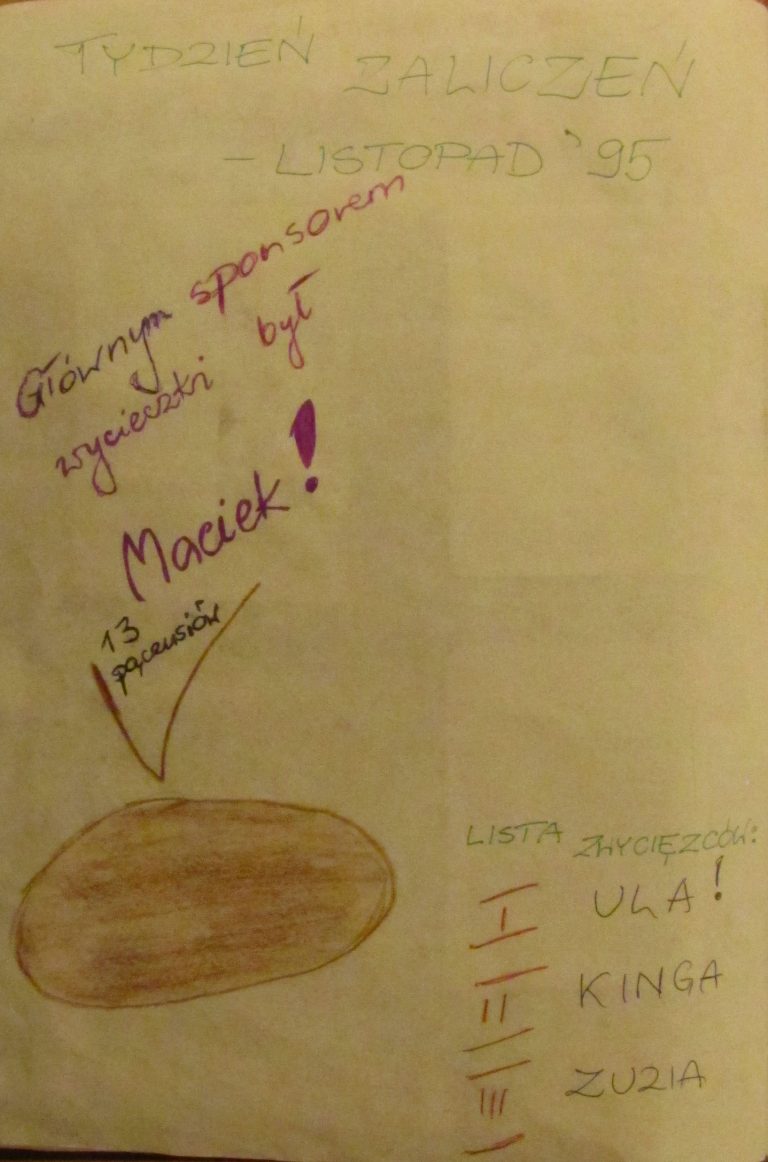 TYDZIEŃ ZALICZEŃ
- LISTOPAD '95
Głównym sponsorem
wycieczki był
Maciek!
13
LISTA ZWYCIĘZCÓW:
I ULA!
II KINGA
III ZUZIA